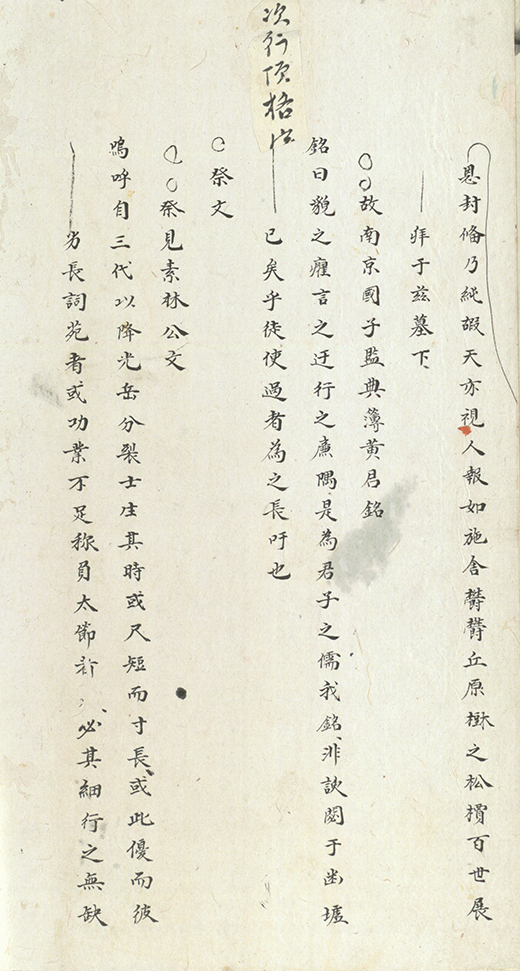 恩封脩乃純嘏天亦視人報如施舍欝欝丘原樹之松檟百世展
拜于兹墓下
故南京國子監典簿黄君銘
銘曰貌之癯言之迂行之廉隅是為君子之儒我銘非諛閟于幽墟
次行頂格
已矣乎徒使過者為之長吁也
祭文
祭見素林公文
嗚呼自三代以降光岳分裂士生其時或尺短而寸長或此優而彼
劣長詞苑者或功業不足称負太節 必其細行之無缺